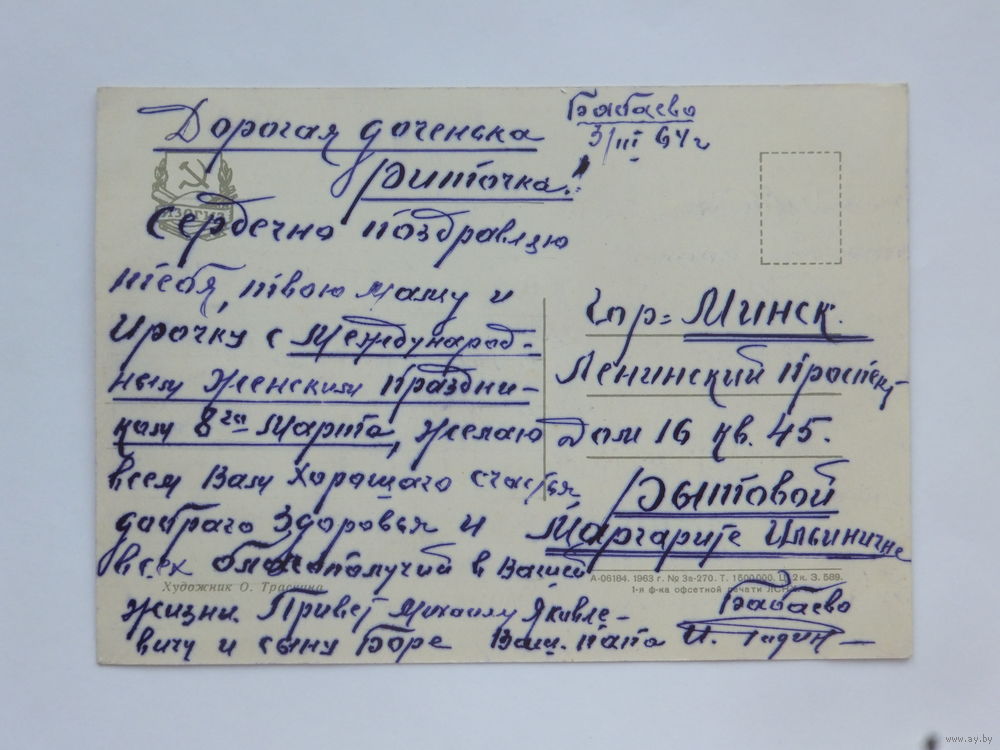 Бабаево
3/III 64 г
Дорогая доченька
Риточка!
Сердечно поздравляю
тебя, твою маму и
Ирочку с Международ-
ным Женским Праздни-
ком 8го Марта, желаю
всем Вам хорошаго счастья
добраго здоровья и
всех благополучий в Вашей
жизни. Привет Михаилу Яковле-
вичу и сыну Боре Ваш папа И.
Бабаево
ИЗОГИЗ
Гор= Минск.
Ленинский Проспект
Дом 16 кв. 45.
Рытовой
Маргарите Ильиничне
Художник О. Траскина
А-06184. 1963 г. № 3а-270. Т. 1600000. Ц. 2 к. З. 589.
1-я ф-ка офсетной печати
www.ay.by